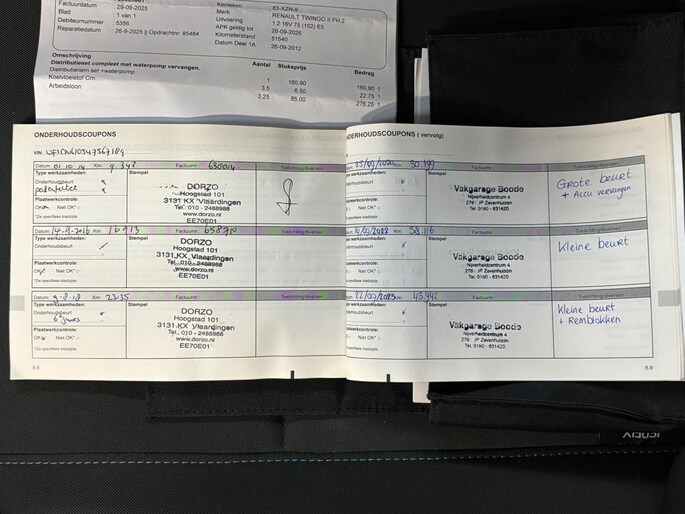 Factuurdatum : 29-09-2025
Blad : 1 van 1
Debiteurnummer : 5356
Reparatiedatum : 26-9-2025 || Opdrachtnr: 85484
Kenteken
Merk : RENAULT TWINGO II PH.2
Uitvoering : 1.2 16V 75 (102) E5
APK geldig tot : 26-09-2026
Kilometerstand : 51540
Datum Deel 1A : 26-09-2012
Omschrijving Aantal Stukprijs Bedrag
Distributieset compleet met waterpomp vervangen.
Distributieriem set +waterpomp 1 160,90 160,90
Koelvloeistof Cm 3,5 6,50 22,75
Arbeidsloon 3,25 85,00 276,25
ONDERHOUDSCOUPONS
VIN:
Datum: 01.10.14 Km: 9.342 Factuurnr: 630014
Type werkzaamheden: Stempel
Onderhoudsbeurt
DORZO
Hoogstad 101
3131 KX Vlaardingen
Tel.: 010 - 2488988
www.dorzo.nl
EE70E01
Plaatwerkcontrole:
OK Niet OK*
*Zie specifieke bladzijde
Km: 16913 Factuurnr: 658710
Type werkzaamheden: Stempel
Onderhoudsbeurt
DORZO
Hoogstad 101
3131 KX Vlaardingen
Tel.: 010 - 2488988
www.dorzo.nl
EE70E01
Plaatwerkcontrole:
OK Niet OK*
*Zie specifieke bladzijde
Factuurnr:
Type werkzaamheden: Stempel
Onderhoudsbeurt
6 jaars
DORZO
Hoogstad 101
3131 KX Vlaardingen
Tel.: 010 - 2488988
www.dorzo.nl
EE70E01
Plaatwerkcontrole:
OK Niet OK*
*Zie specifieke bladzijde
6.8
ONDERHOUDSCOUPONS ( vervolg)
25/09/2020 Km: 30.199
Type werkzaamheden: Stempel
Onderhoudsbeurt
Vakgarage Boode
Nijverheidcentrum 4
276 JP Zevenhuizen
Tel. 0180 - 631420
Grote beurt
+ Accu vervangen
Plaatwerkcontrole:
OK Niet OK*
*Zie specifieke bladzijde
Km: 38.116
Type werkzaamheden: Stempel
Onderhoudsbeurt
Vakgarage Boode
Nijverheidcentrum 4
276 JP Zevenhuizen
Tel. 0180 - 631420
Kleine beurt
Plaatwerkcontrole:
OK Niet OK*
*Zie specifieke bladzijde
22/09/2023 Km: 43.942
Type werkzaamheden: Stempel
Onderhoudsbeurt
Vakgarage Boode
Nijverheidcentrum 4
276 JP Zevenhuizen
Tel. 0180 - 631420
Kleine beurt
+ Remblokken
Plaatwerkcontrole:
OK Niet OK*
*Zie specifieke bladzijde
6.9